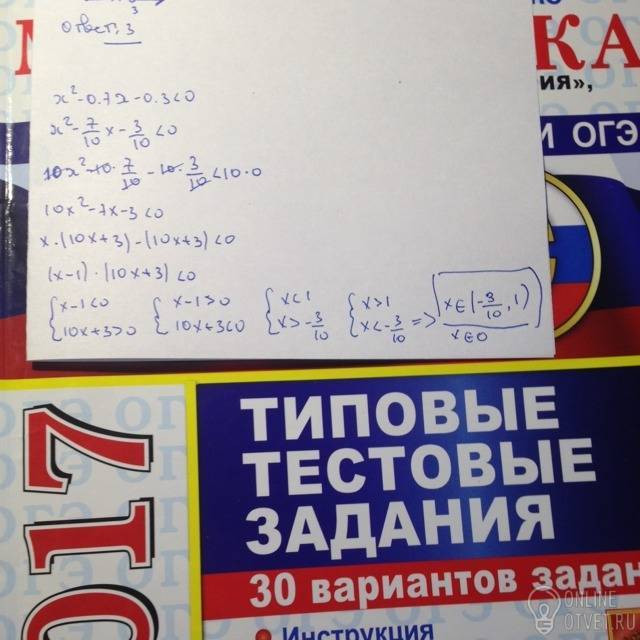 3
Ответ: 3
КА
ия»,
x² - 0.7x - 0.3 < 0
x² - 7/10 x - 3/10 < 0
10x² - 10 · 7/10 - 10 · 3/10 < 10 · 0
10x² - 7x - 3 < 0
x · (10x + 3) - (10x + 3) < 0
(x - 1) · (10x + 3) < 0
{ x - 1 < 0 { x - 1 > 0 { x < 1 { x > 1 => x ∈ (-3/10, 1)
10x + 3 > 0 10x + 3 < 0 x > -3/10 x < -3/10 x ∈ ∅
И ОГЭ
017
ТИПОВЫЕ
ТЕСТОВЫЕ
ЗАДАНИЯ
30 вариантов задан
Инструкция
ONLINE
OTVET.RU